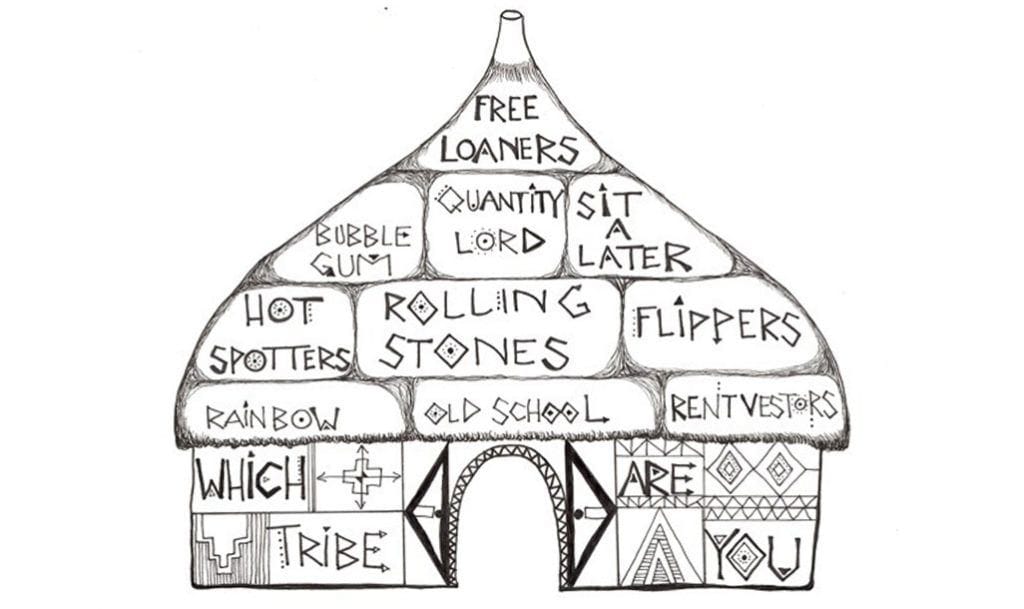 FREE
LOANERS
BUBBLE
GUM
QUANTITY
LORD
SIT
A
LATER
HOT
SPOTTERS
ROLLING
STONES
FLIPPERS
RAINBOW
OLD SCHOOL
RENTVESTORS
WHICH
TRIBE
ARE
YOU